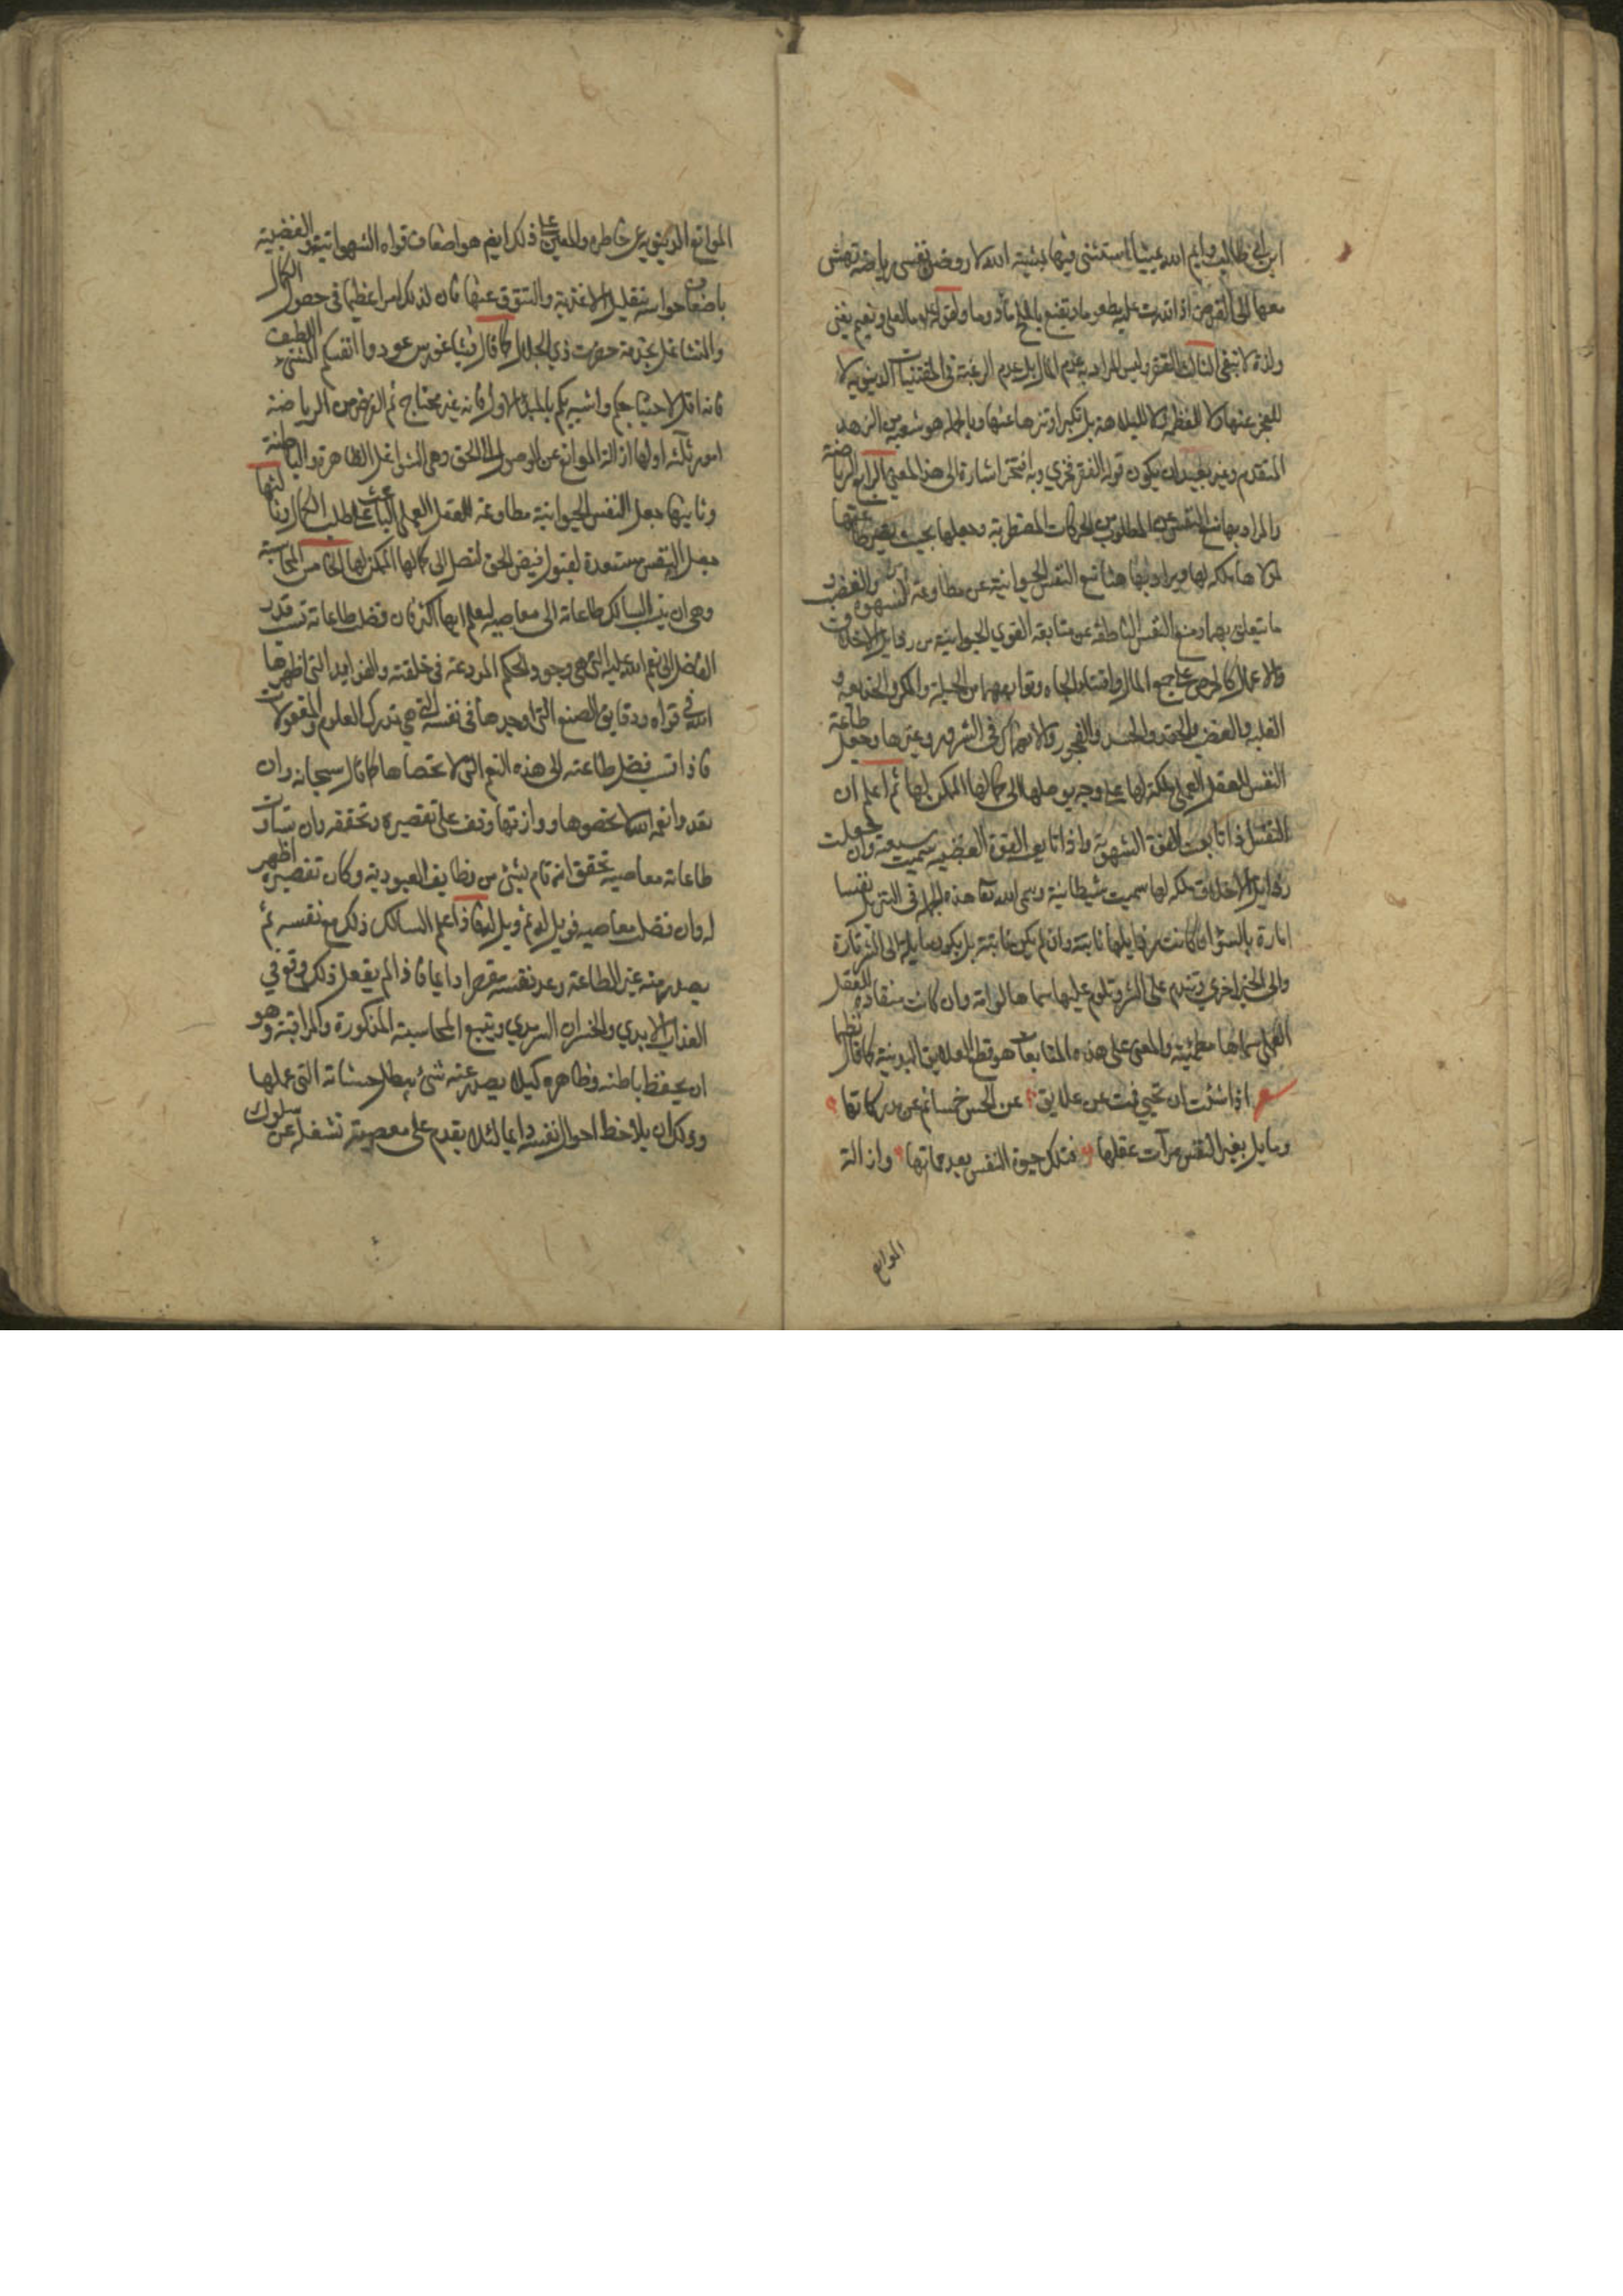 ابن ابي طالب وايم الله يمينا استثنى فيها بمشية الله لاروضن نفسى رياضة تهش
معها الى القرص اذا قدرت عليه مطعوما وتقنع بالملح مأدوما ولعلى ونعيم يفنى
ولذة لا تبقى الثالث الفقر وليس المراد به عدم المال بل عدم الرغبة فى المقتنيات الدنيوية لا
للعجز عنها ولا للغفلة ولا للبلاهة بل تكبرا وتنزها عنها وبالجملة هو شعبة من الزهد
المتقدم وغير بعيد ان يكون قوله الفقر فخري وبه افتخر اشارة الى هذا المعنى الرابع الرياضة
والمراد بها منع النفس عن المطلوب من الحركات المضطربة وجعلها بحيث يصير طاعتها
لمولاها ملكة لها ويراد بها هنا منع النفس الحيوانية عن مطاوعة الشهوة والغضب و
ما يتعلق بهما ومنع النفس الناطقة عن متابعة القوي الحيوانية من رذايل الاخلاق
والاعمال كالحرص على جمع المال واقتناء الجاه وتوابعهما من الحيلة والمكر والخديعة و
الغلبة والغضب والحقد والحسد والفجور والانهماك فى الشرور وغيرها وجعل طاعة
النفس للعقل العملى ملكة لها على وجه يوصلها الى كمالها الممكن لها ثم اعلم ان
النفس اذا تابعت القوة الشهوية واذا تابعت القوة الغضبية سميت سبعية وان جعلت
رذايل الاخلاق ملكة لها سميت شيطانية وسمى الله تعا هذه الجملة فى التنزيل نفسا
امارة بالسوء ان كانت رذايلها ثابتة وان لم يكن ثابتة بل يكون مايلة الى الشر تارة
والى الخير اخري وتندم على الشر وتلوم عليها سماها لوامة وان كانت منقادة للعقل
العملى سماها مطمئنة والمعين على هذه المتابعات هو قطع العلايق البدنية كما قال نظما
شعر اذا شئت ان تحيي فمت عن علايق عن الحس خمسا ثم عن مدركاتها
وقابل بعين النفس مرآت عقلها فتلك حيوة النفس بعد مماتها وازالة
الموانع
الموانع الدنيوية عن خاطره والمعين على ذلك ايضم هو اضعاف قواه الشهوانية والغضبية
باضعاف حواسه بتقليل الاغذية والتنوق عنها فان لذلك امرا عظيما فى حصول الكمال
والتشاغل بخدمة حضرت ذي الجلال كما قال فيثاغورس عودوا انفسكم الشىء اللطيف
فانه اقل لاحتياجكم واشبهكم بالمبدء الاول فانه غير محتاج ثم الغرض من الرياضة
امور ثلثة اولها ازالة الموانع عن الوصول الى الحق وهى الشواغل الظاهرة والباطنة
وثانيها جعل النفس الحيوانية مطاوعة للعقل العملى الباعث على طلب الكمال وثالثها
جعل النفس مستعدة لقبول فيض الحق لتصل الى كمالها الممكن لها الخامس المحاسبة
وهى ان ينسب السالك طاعاته الى معاصيه ليعلم ايها اكثر فان فضل طاعاته نسب قدر
الفاضل الى نعم الله عليه التى هى وجوده والحكم المودعة فى خلقته والفوايد التى اظهرها
الله فى قواه ودقايق الصنع التى اوجدها فى نفسه التى هى تدرك العلوم والمعقولات
فاذا نسب فضل طاعته الى هذه النعم التى لا تحصاها كما قال سبحانه وان
تعدوا نعمة الله لا تحصوها ووازنها وقف على تقصيره وتحققه وان تساوت
طاعاته معاصيه تحقق انه قام بشئ من وظايف العبودية وكان تقصيره اظهر
له وان فضلت معاصيه فويل له ثم ويل له فاذا علم السالك ذلك مع نفسه ثم
يصدر منه غير الطاعة وعد نفسه مقصرا دايما فاذا لم يفعل ذلك وقع فى
العذاب الابدي والخسران السرمدي ويتبع المحاسبة المذكورة والمراقبة وهو
ان يحفظ باطنه وظاهره كيلا يصدر عنه شئ يبطل حسناته التى عملها
وذلك ان يلاحظ احوال نفسه دايما لئلا يقدم على معصية تشغله عن سلوك